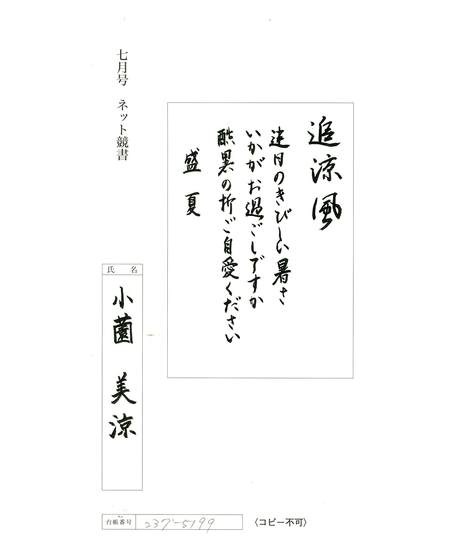 追涼風
連日のきびしい暑さ
いかがお過ごしですか
酷暑の折ご自愛ください
盛夏
七月号 ネット競書
氏名
小薗 美涼
台帳番号 237-5199
〈コピー不可〉